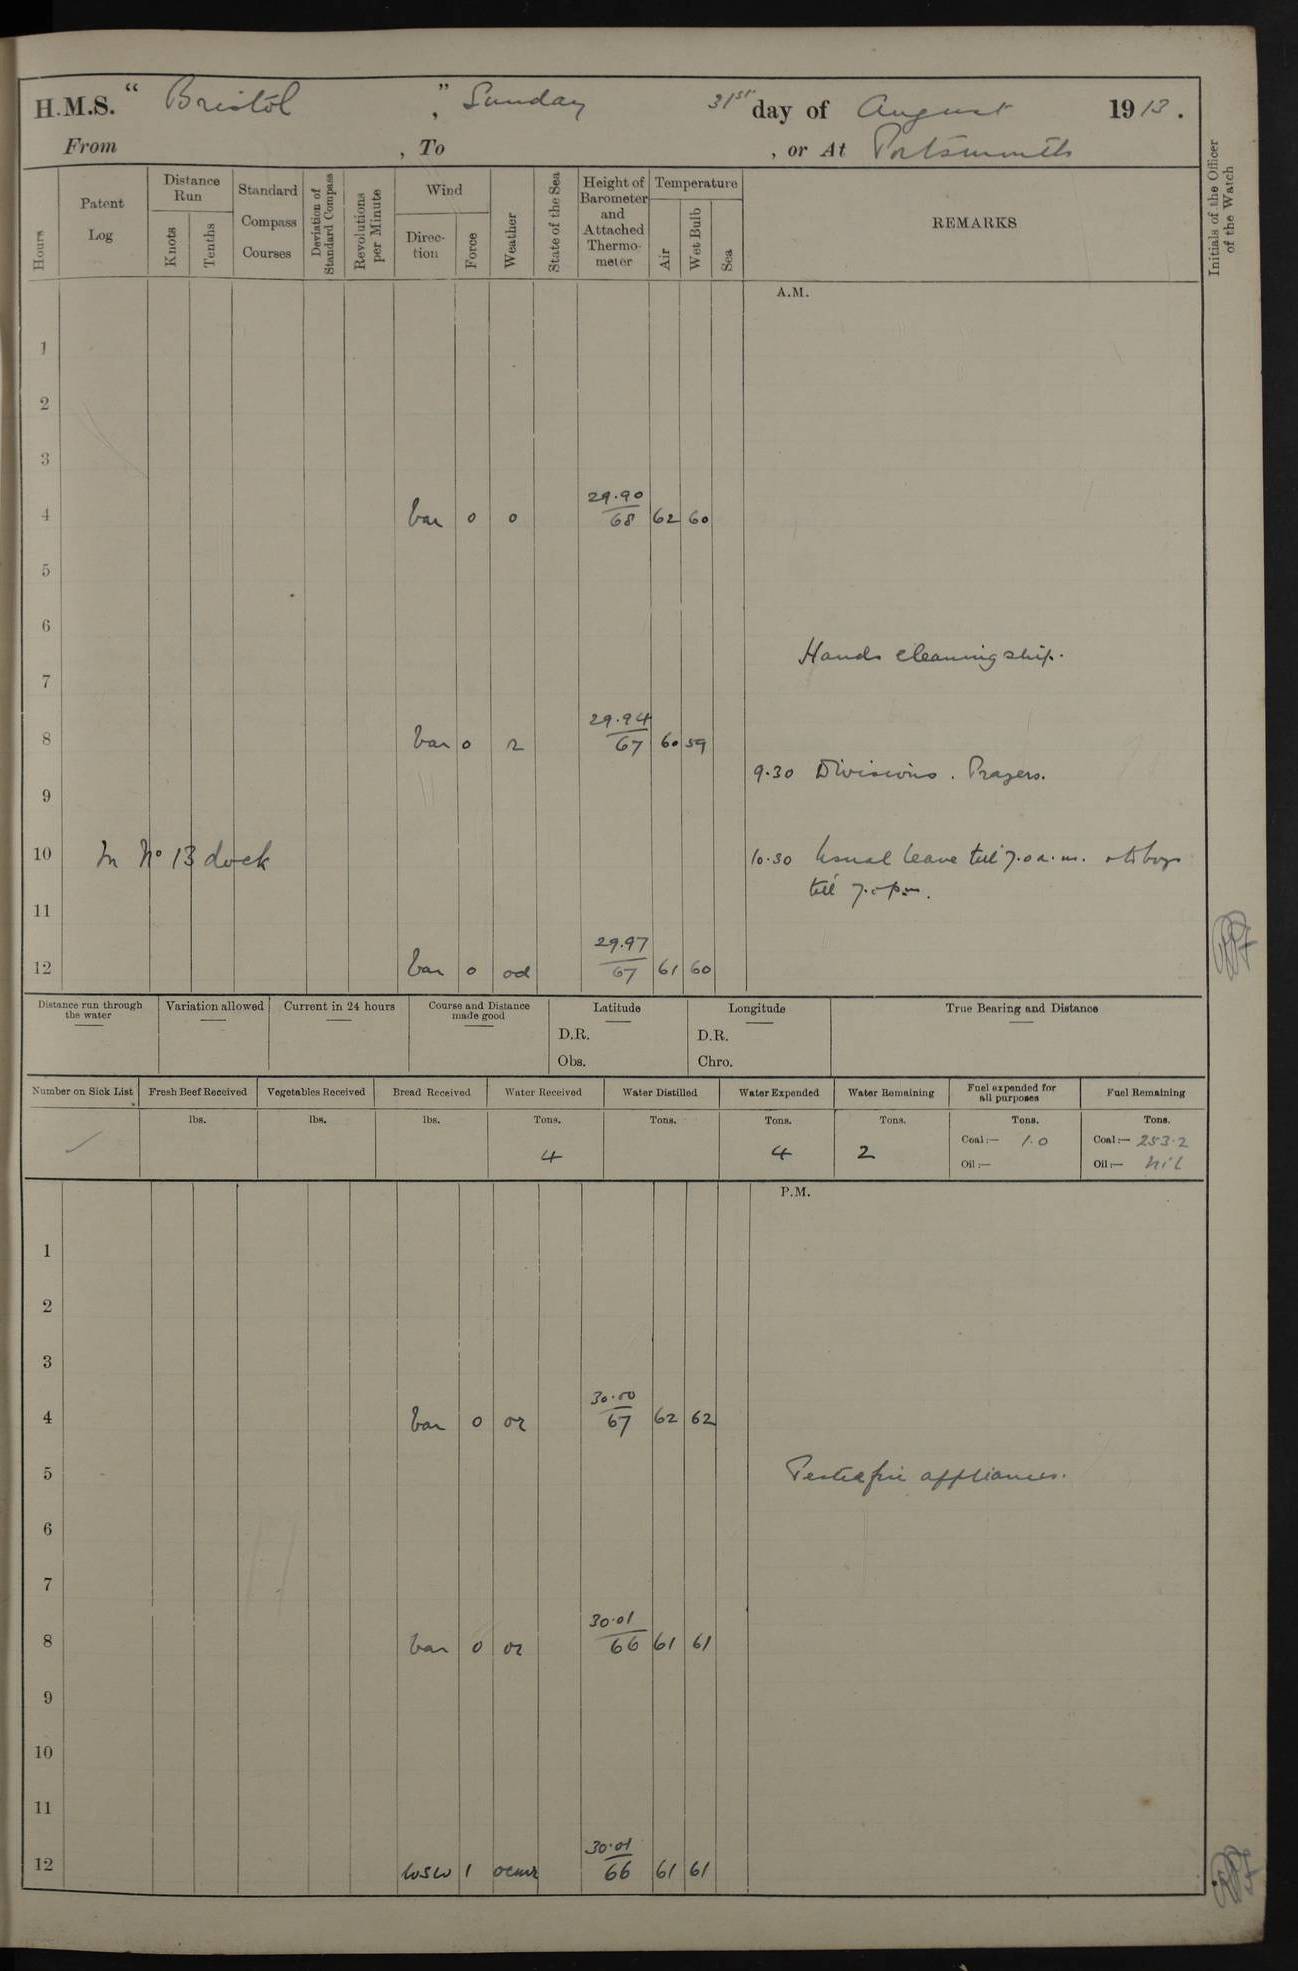 H.M.S. "Bristol", " Sunday 31st day of August 1913.
From , To , or At Portsmouth
Hours
Patent Log
Distance Run
Knots
Tenths
Standard Compass Courses
Deviation of Standard Compass
Revolutions per Minute
Wind
Direction
Force
Weather
State of the Sea
Height of Barometer and Attached Thermometer
Temperature
Air
Wet Bulb
Sea
REMARKS
Initials of the Officer of the Watch
A.M.
1
2
3
29.90
4 bar 0 o 68 62 60
5
6
Hands cleaning ship.
7
29.94
8 bar 0 r 67 60 59
9.30 Divisions. Prayers.
9
10 In No 13 dock 10.30 Usual leave till 7.0 a.m.
till 7.0 pm.
11
29.97
12 bar 0 od 67 61 60
Distance run through the water
Variation allowed
Current in 24 hours
Course and Distance made good
Latitude
D.R.
Obs.
Longitude
D.R.
Chro.
True Bearing and Distance
Number on Sick List
Fresh Beef Received
lbs.
Vegetables Received
lbs.
Bread Received
lbs.
Water Received
Tons.
4
Water Distilled
Tons.
Water Expended
Tons.
4
Water Remaining
Tons.
2
Fuel expended for all purposes
Tons.
Coal:— 1.0
Oil:—
Fuel Remaining
Tons.
Coal:— 253.2
Oil:— Nil
P.M.
1
2
3
30.00
4 bar 0 or 67 62 62
5 Tested fire appliances.
6
7
30.01
8 bar 0 or 66 61 61
9
10
11
30.01
12 WSW 1 66 61 61